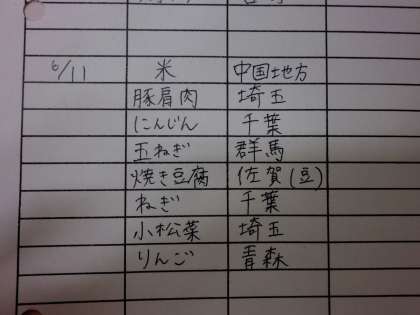 6/11 米 中国地方
豚肩肉 埼玉
にんじん 千葉
玉ねぎ 群馬
焼き豆腐 佐賀(豆)
ねぎ 千葉
小松菜 埼玉
りんご 青森